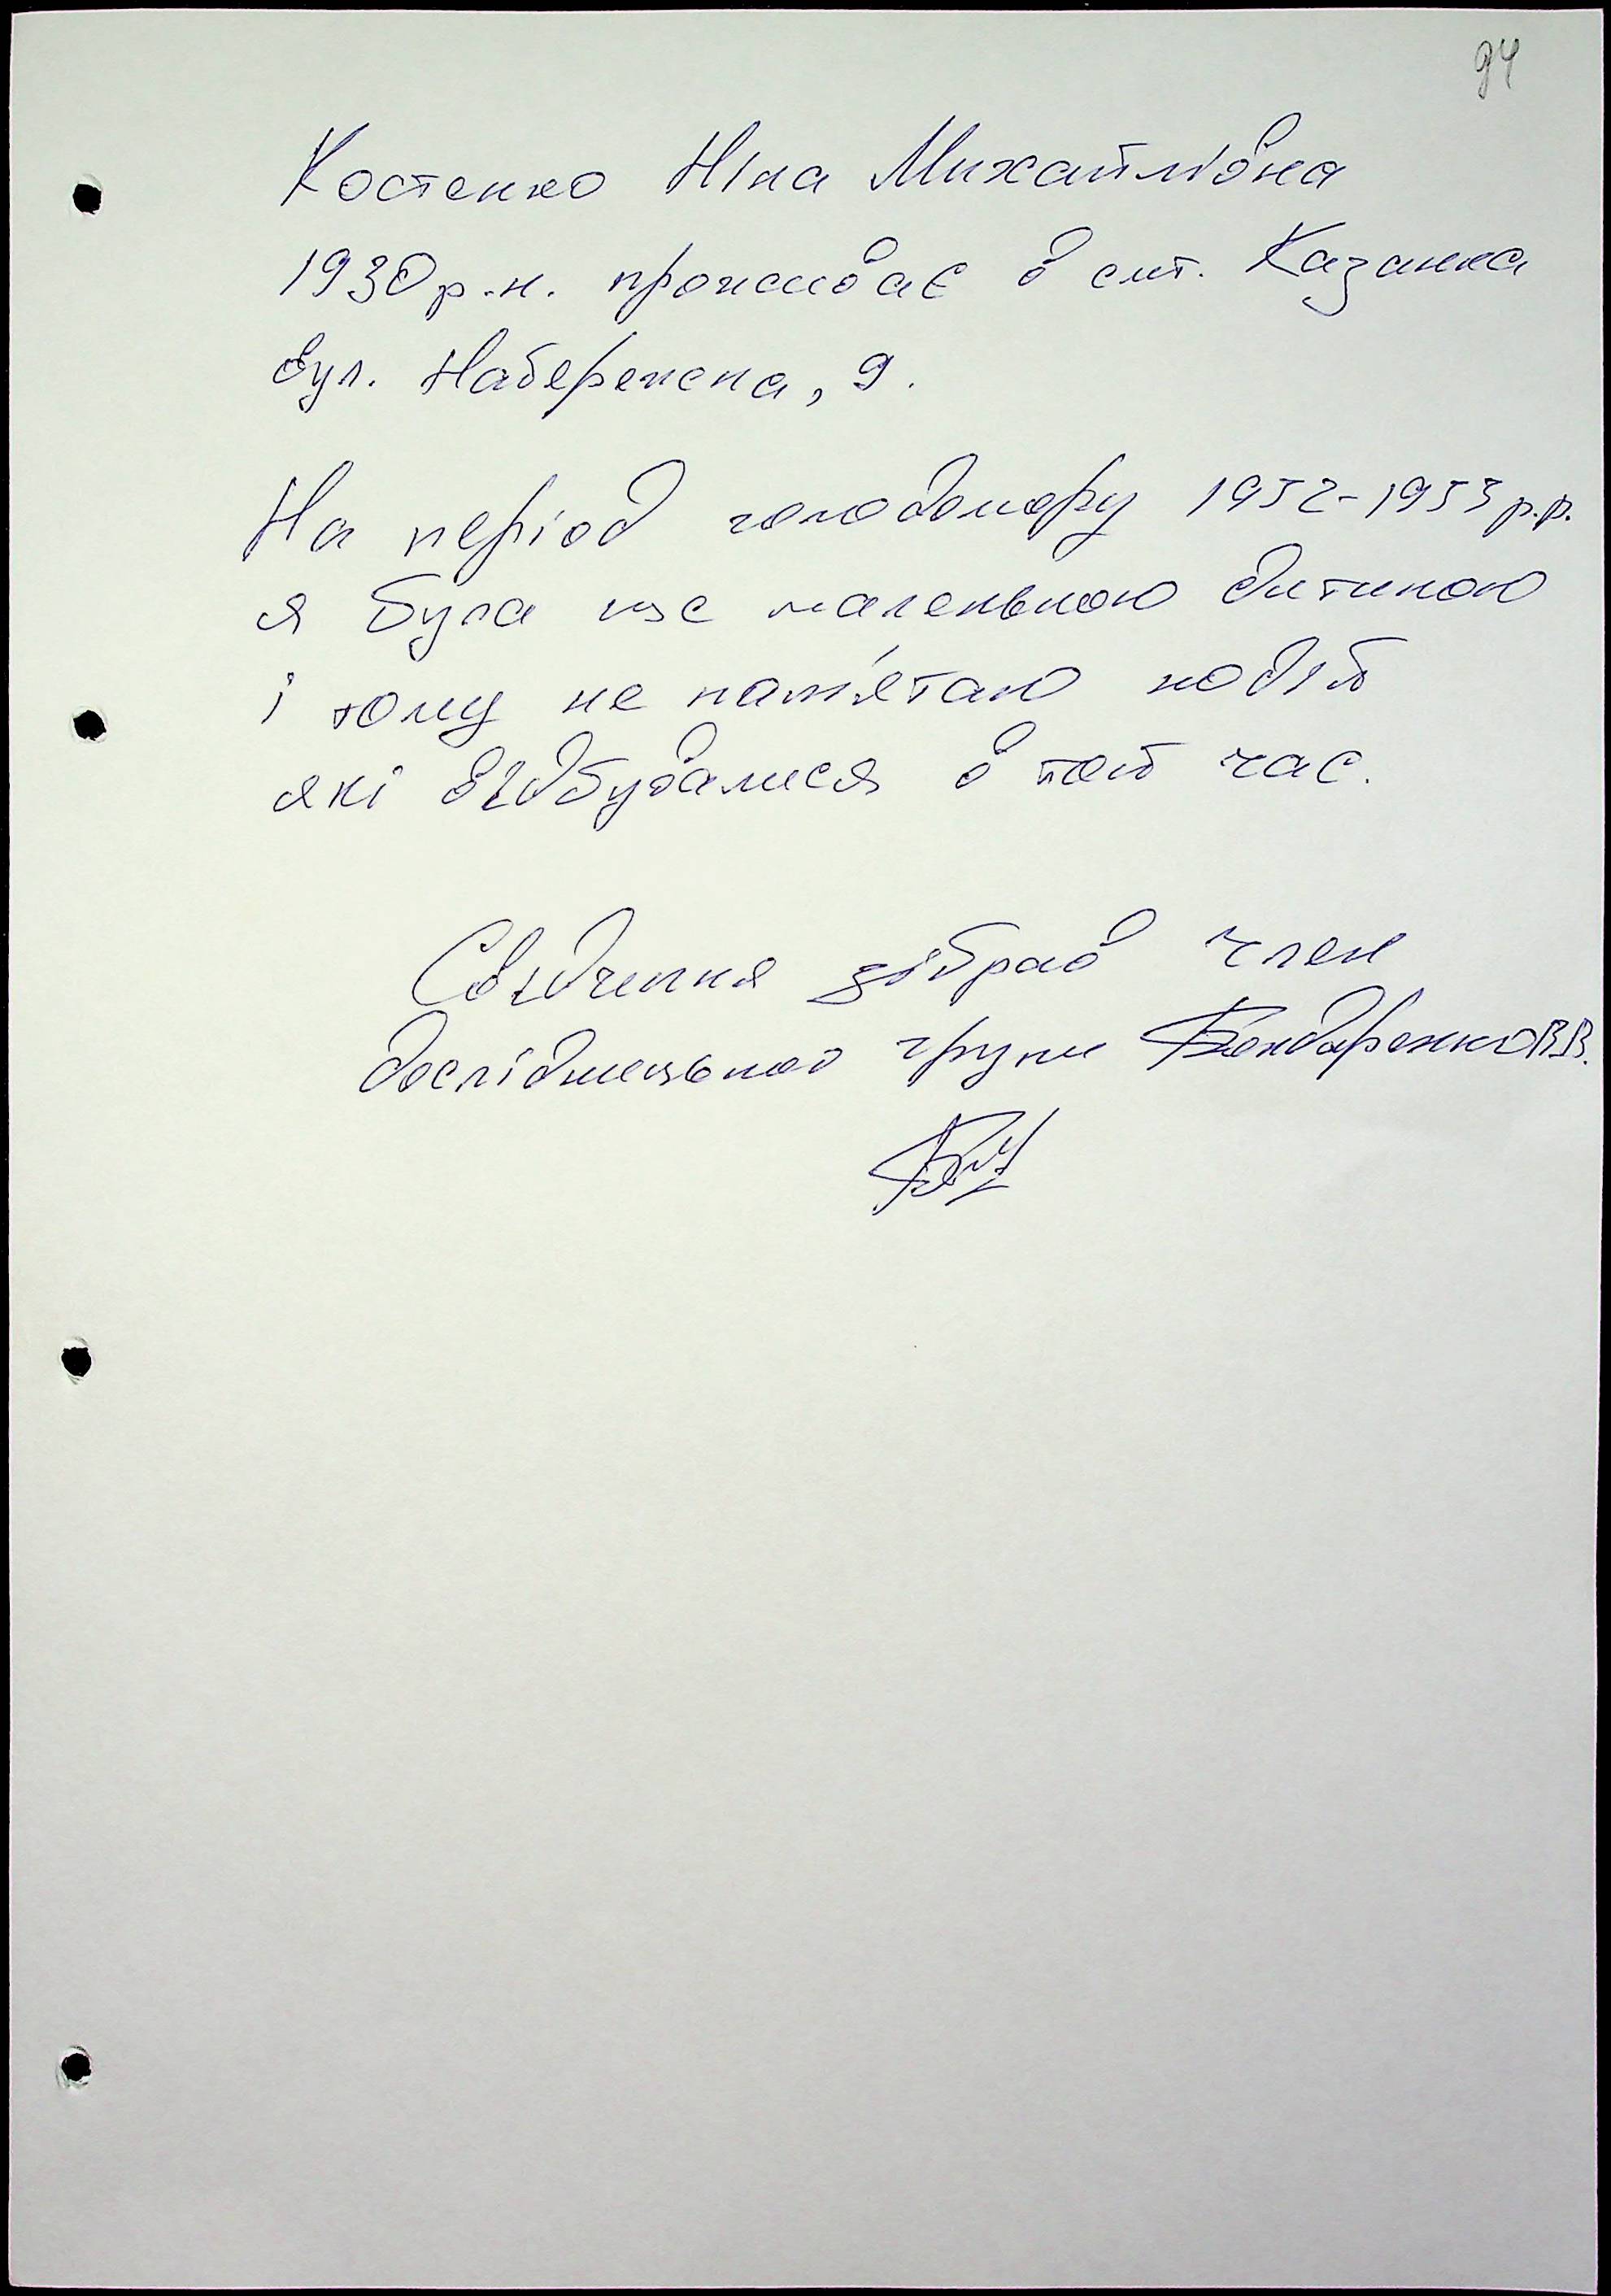 94
Костенко Ніна Михайлівна
1930 р.н. проживає в смт. Казанка
вул. Набережна, 9.
На період голодомору 1932-1933 р.р.
я була ще маленькою дитиною
і тому не пам'ятаю подій
які відбувалися в той час.
Свідчення зібрав член
дослідницької групи Бондаренко В.В.